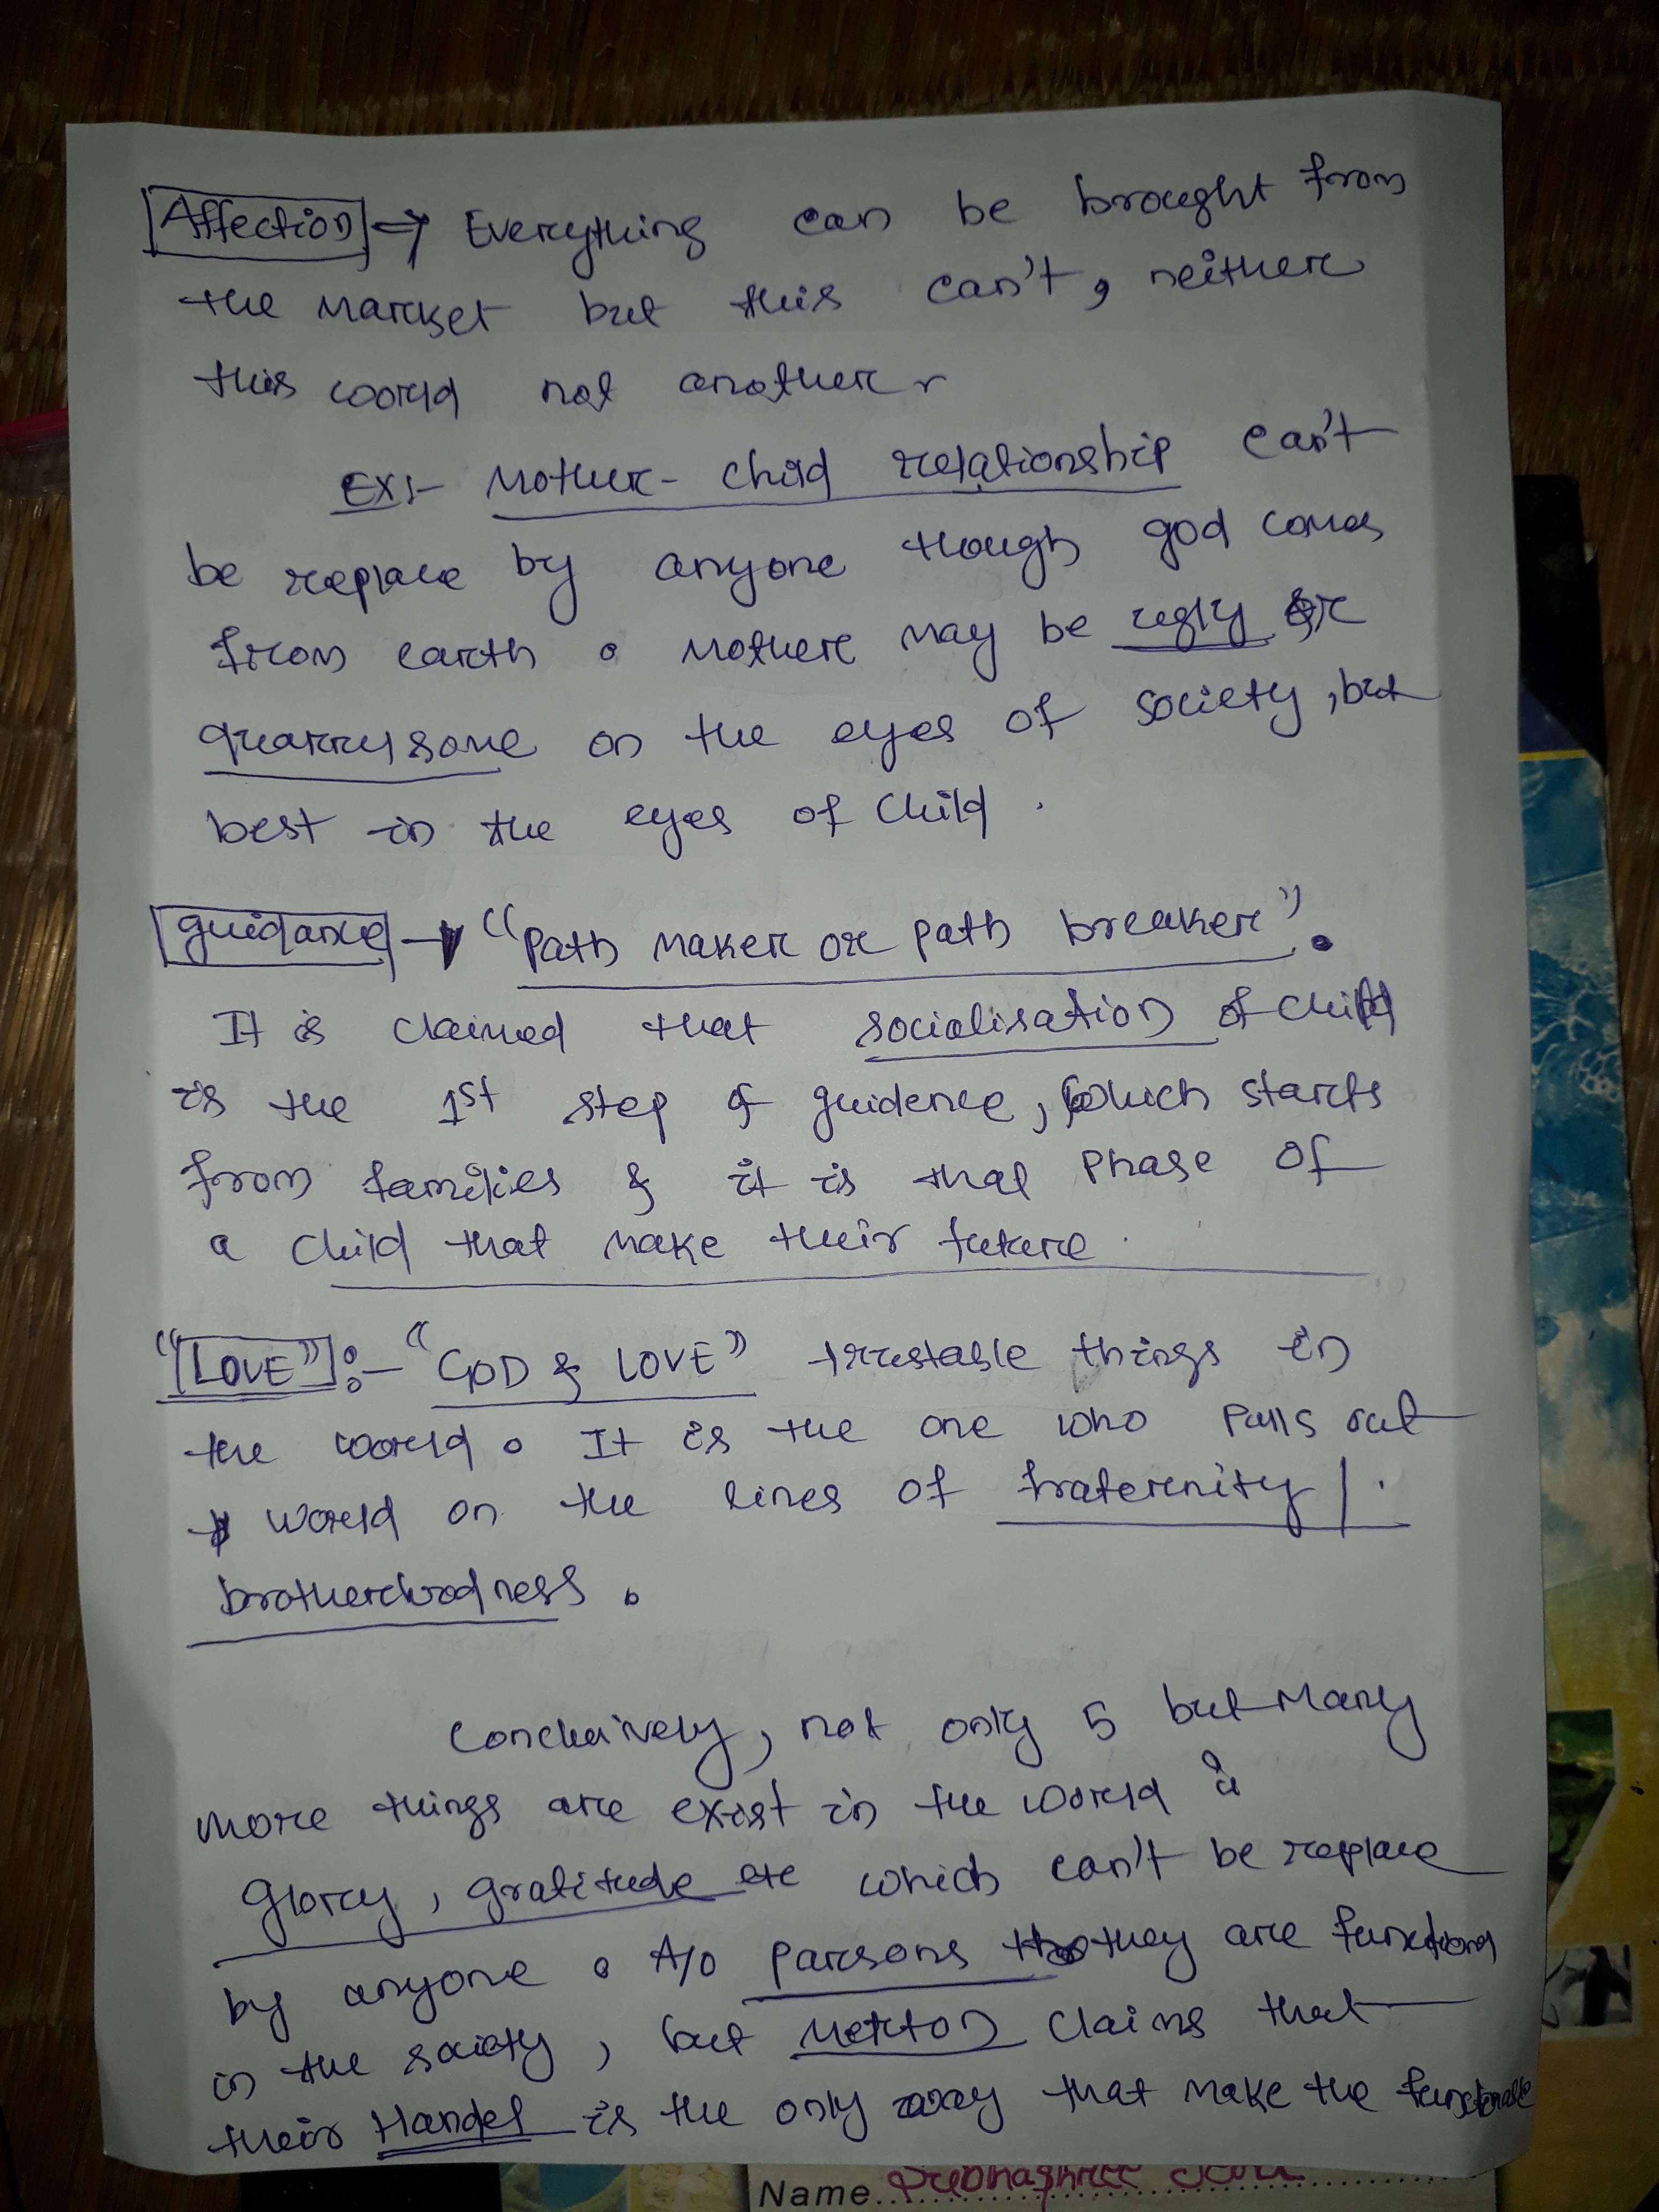 Affection → Everything can be brought from
the market but this can't, neither
this world not another
Ex:- Mother-child relationship can't
be replace by anyone though god comes
from earth. Mother may be ugly or
quarrysome on the eyes of society, but
best in the eyes of child.
guidance → "Path maker or path breaker".
It is claimed that socialisation of child
is the 1st step of guidence, which starts
from families & it is that phase of
a child that make their future.
"LOVE":- "GOD & LOVE" things in
the world. It is the one who pulls out
world on the lines of fraternity/
brotherhoodness.
Conclusively, not only 5 but many
more things are exist in the world
Glory, gratitude etc which can't be replace
by anyone. A/o Parsons they are functions
in the society, but Merton claims that
their Handel is the only way that make the functionable
Name